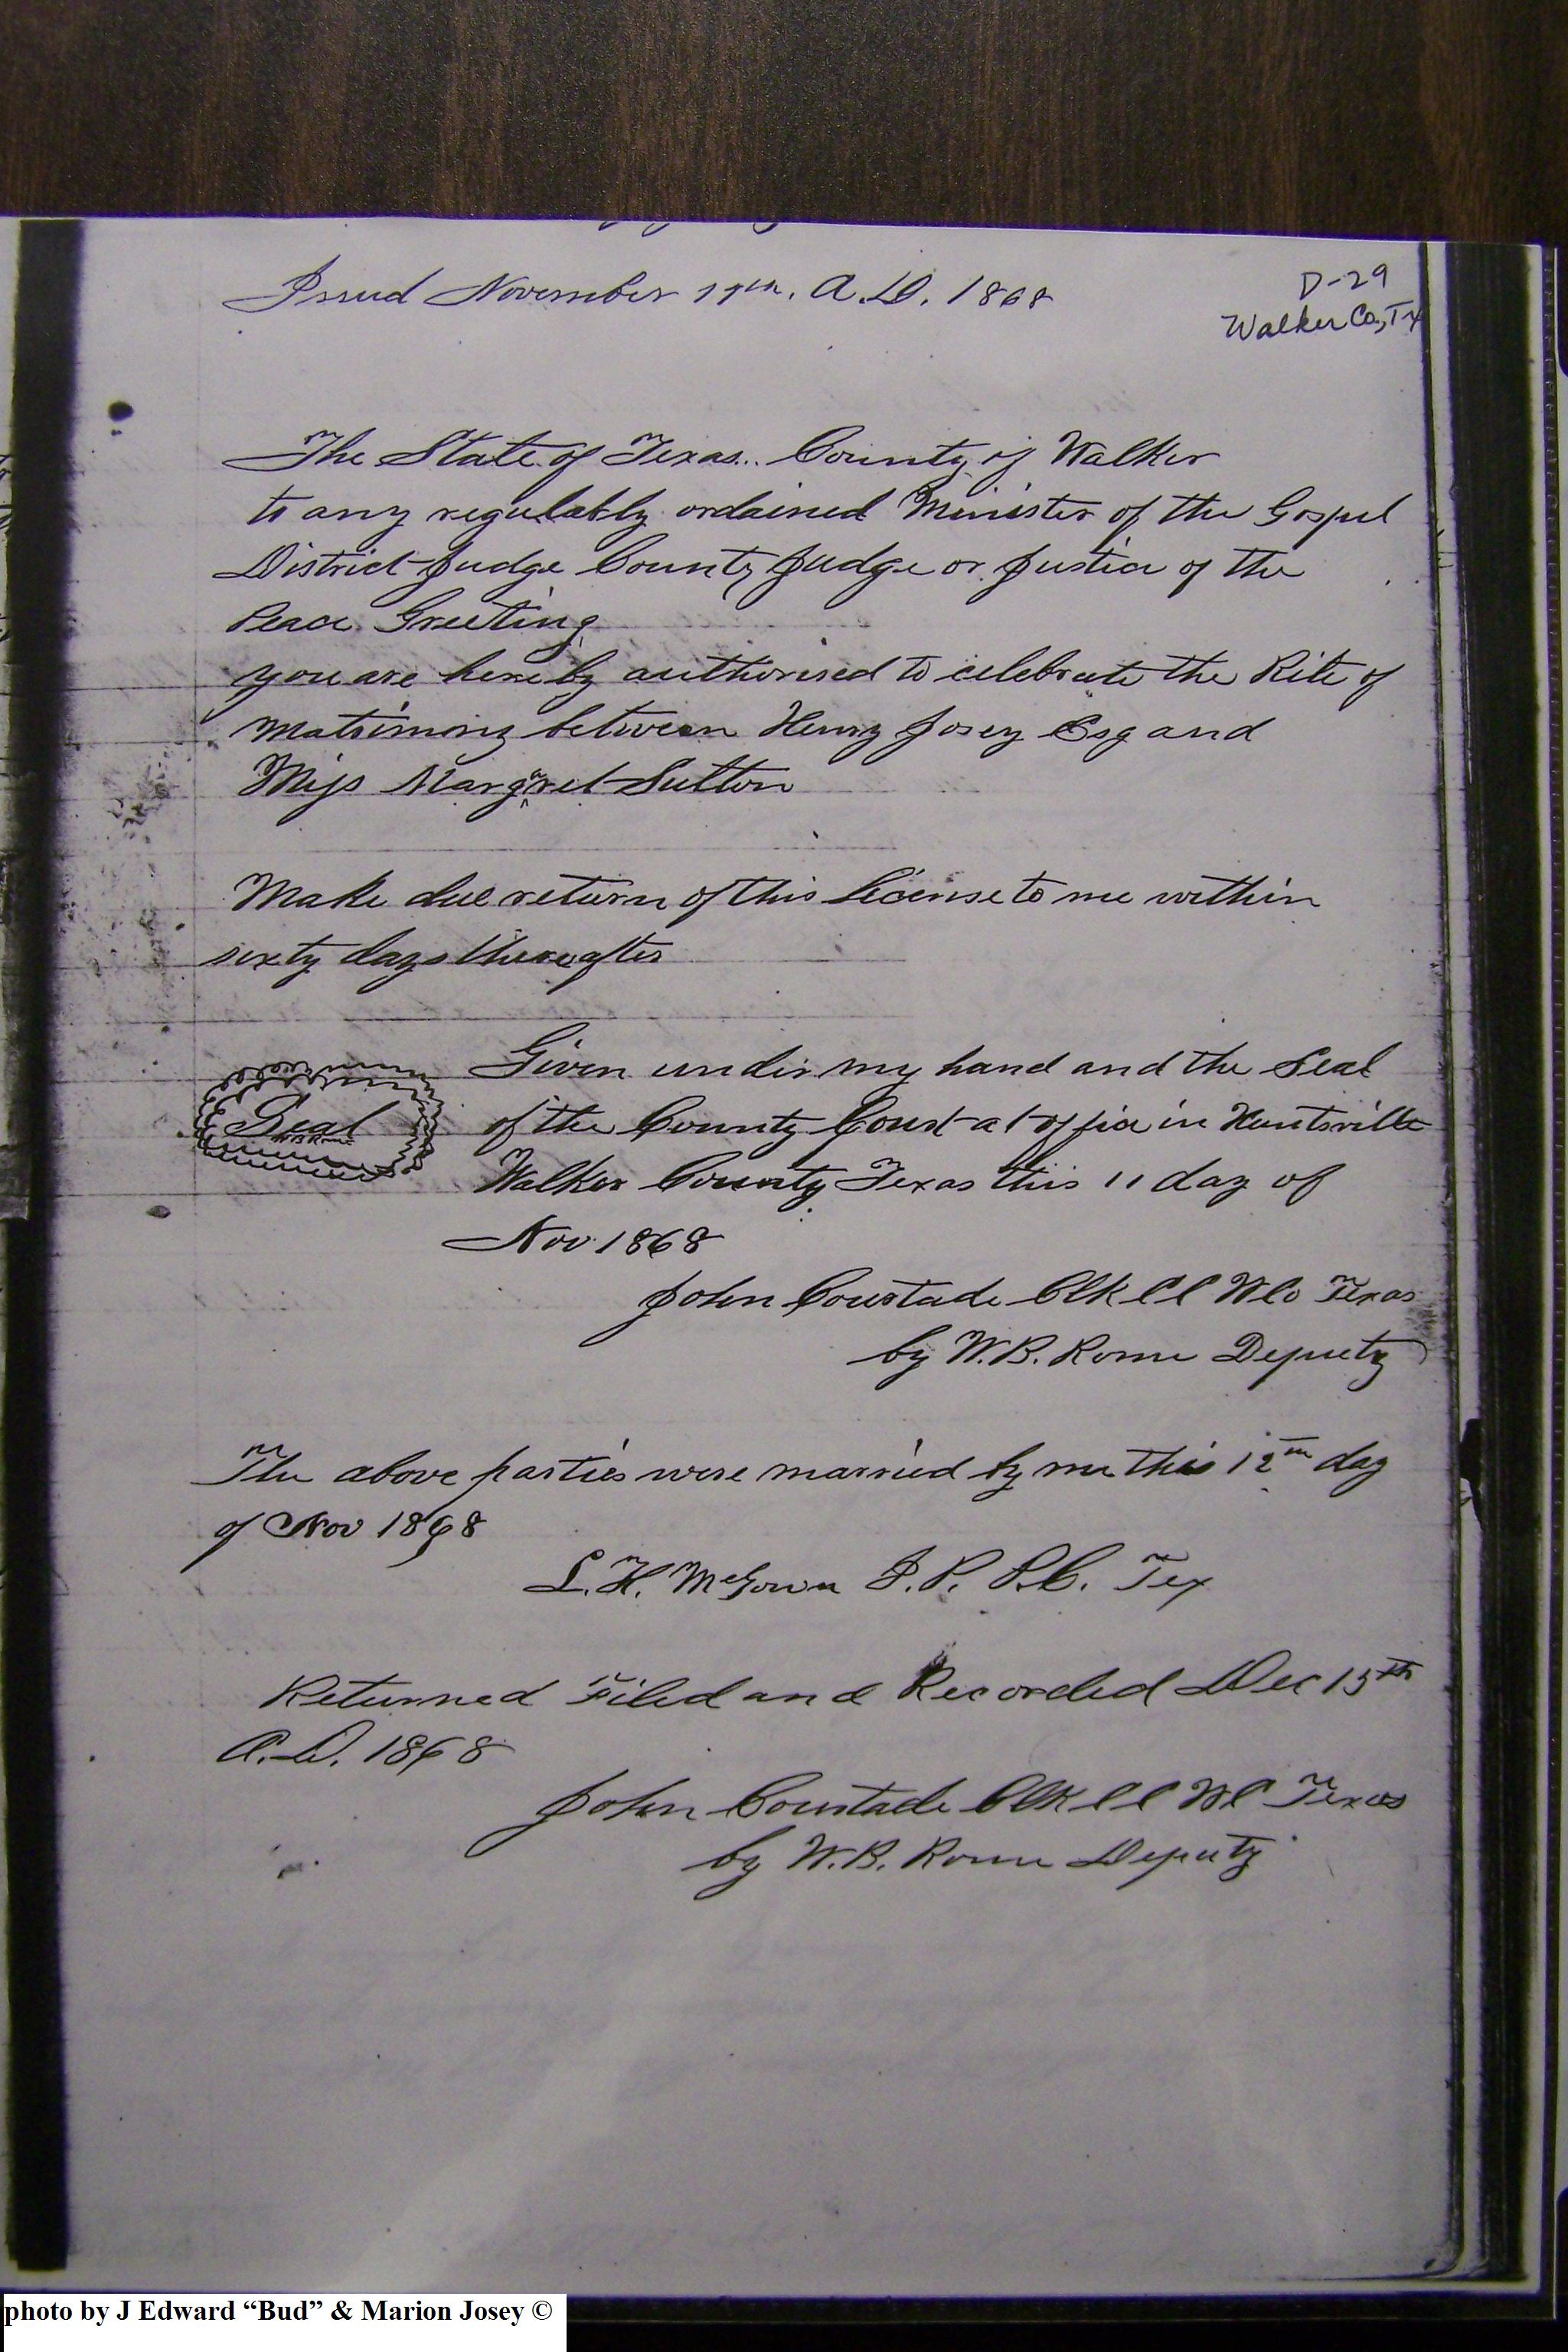 Issued November 11th. A.D. 1868
D-29
Walker Co., Tx
The State of Texas.. County of Walker
to any regulally ordained Minister of the Gospel
District Judge County Judge or Justice of the
Peace Greeting
you are hereby authorised to celebrate the Rite of
Matrimony between Henry Josey Esq and
Miss Margret Sutton
Make due return of this License to me within
sixty days thereafter
Given under my hand and the Seal
of the County Court at office in Huntsville
Seal
Walker County Texas this 11 day of
Nov 1868
John Courtade Clk CC WCo Texas
by W.B. Rome Deputy
The above parties were married by me this 12th day
of Nov 1868
L.H. McGown J.P. P.C. Tex
Returned Filed and Recorded Dec 15th
A.D. 1868
John Courtade Clk CC WC Texas
by W.B. Rome Deputy
photo by J Edward “Bud” & Marion Josey ©